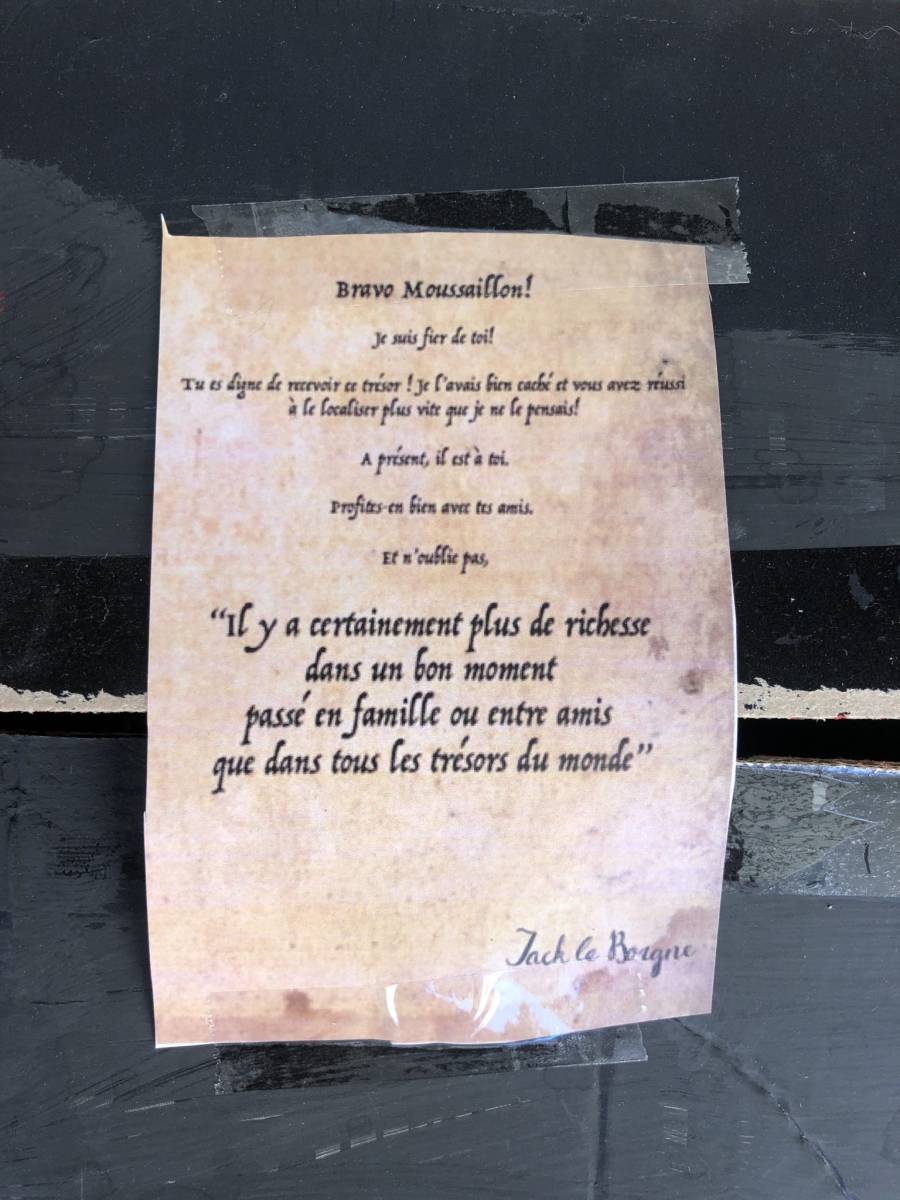 Bravo Moussaillon!
Je suis fier de toi!
Tu es digne de recevoir ce trésor ! Je l'avais bien caché et vous avez réussi
à le localiser plus vite que je ne le pensais!
A présent, il est à toi.
Profites-en bien avec tes amis.
Et n'oublie pas,
“Il y a certainement plus de richesse
dans un bon moment
passé en famille ou entre amis
que dans tous les trésors du monde”
Jack le Borgne